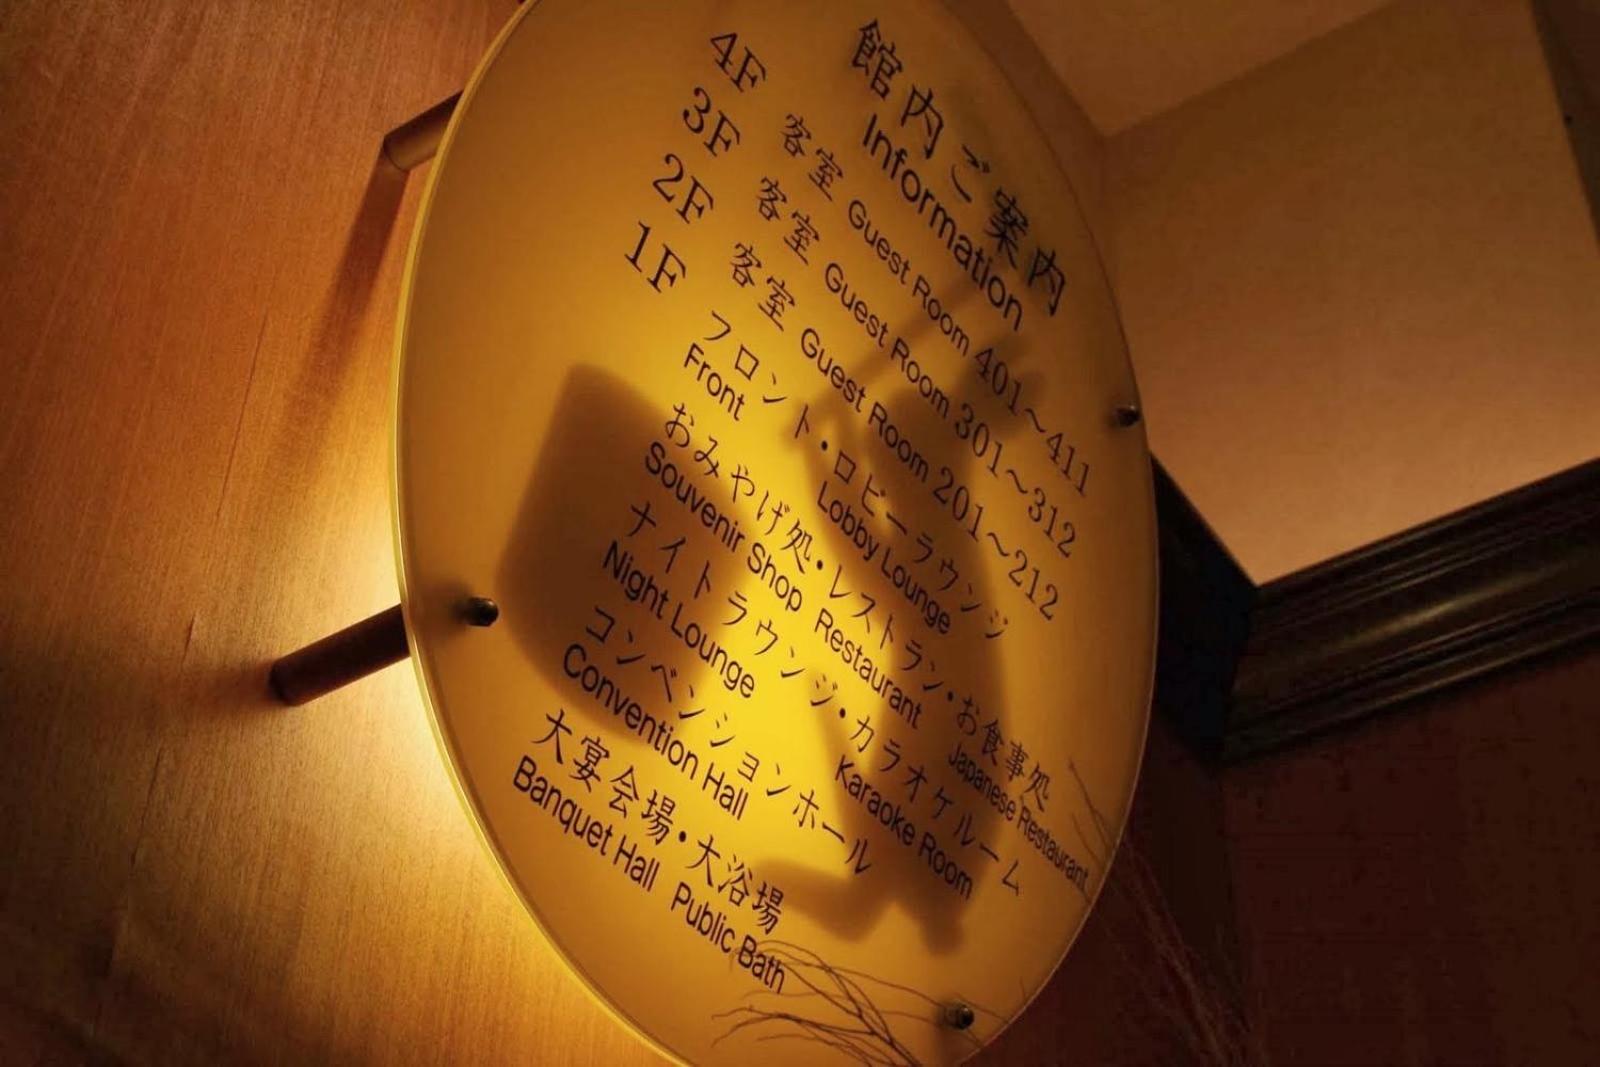 館内ご案内
Information
4F 客室 Guest Room 401～411
3F 客室 Guest Room 301～312
2F 客室 Guest Room 201～212
1F フロント・ロビーラウンジ
Front Lobby Lounge
おみやげ処・レストラン・お食事処
Souvenir Shop Restaurant Japanese Restaurant
ナイトラウンジ・カラオケルーム
Night Lounge Karaoke Room
コンベンションホール
Convention Hall
大宴会場・大浴場
Banquet Hall Public Bath